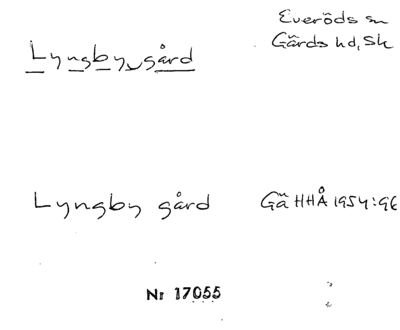 Everöds sn
Lyngby gård
Gärds hd, Sk
Lyngby gård Gä HHÅ 1954:96
Nr 17055